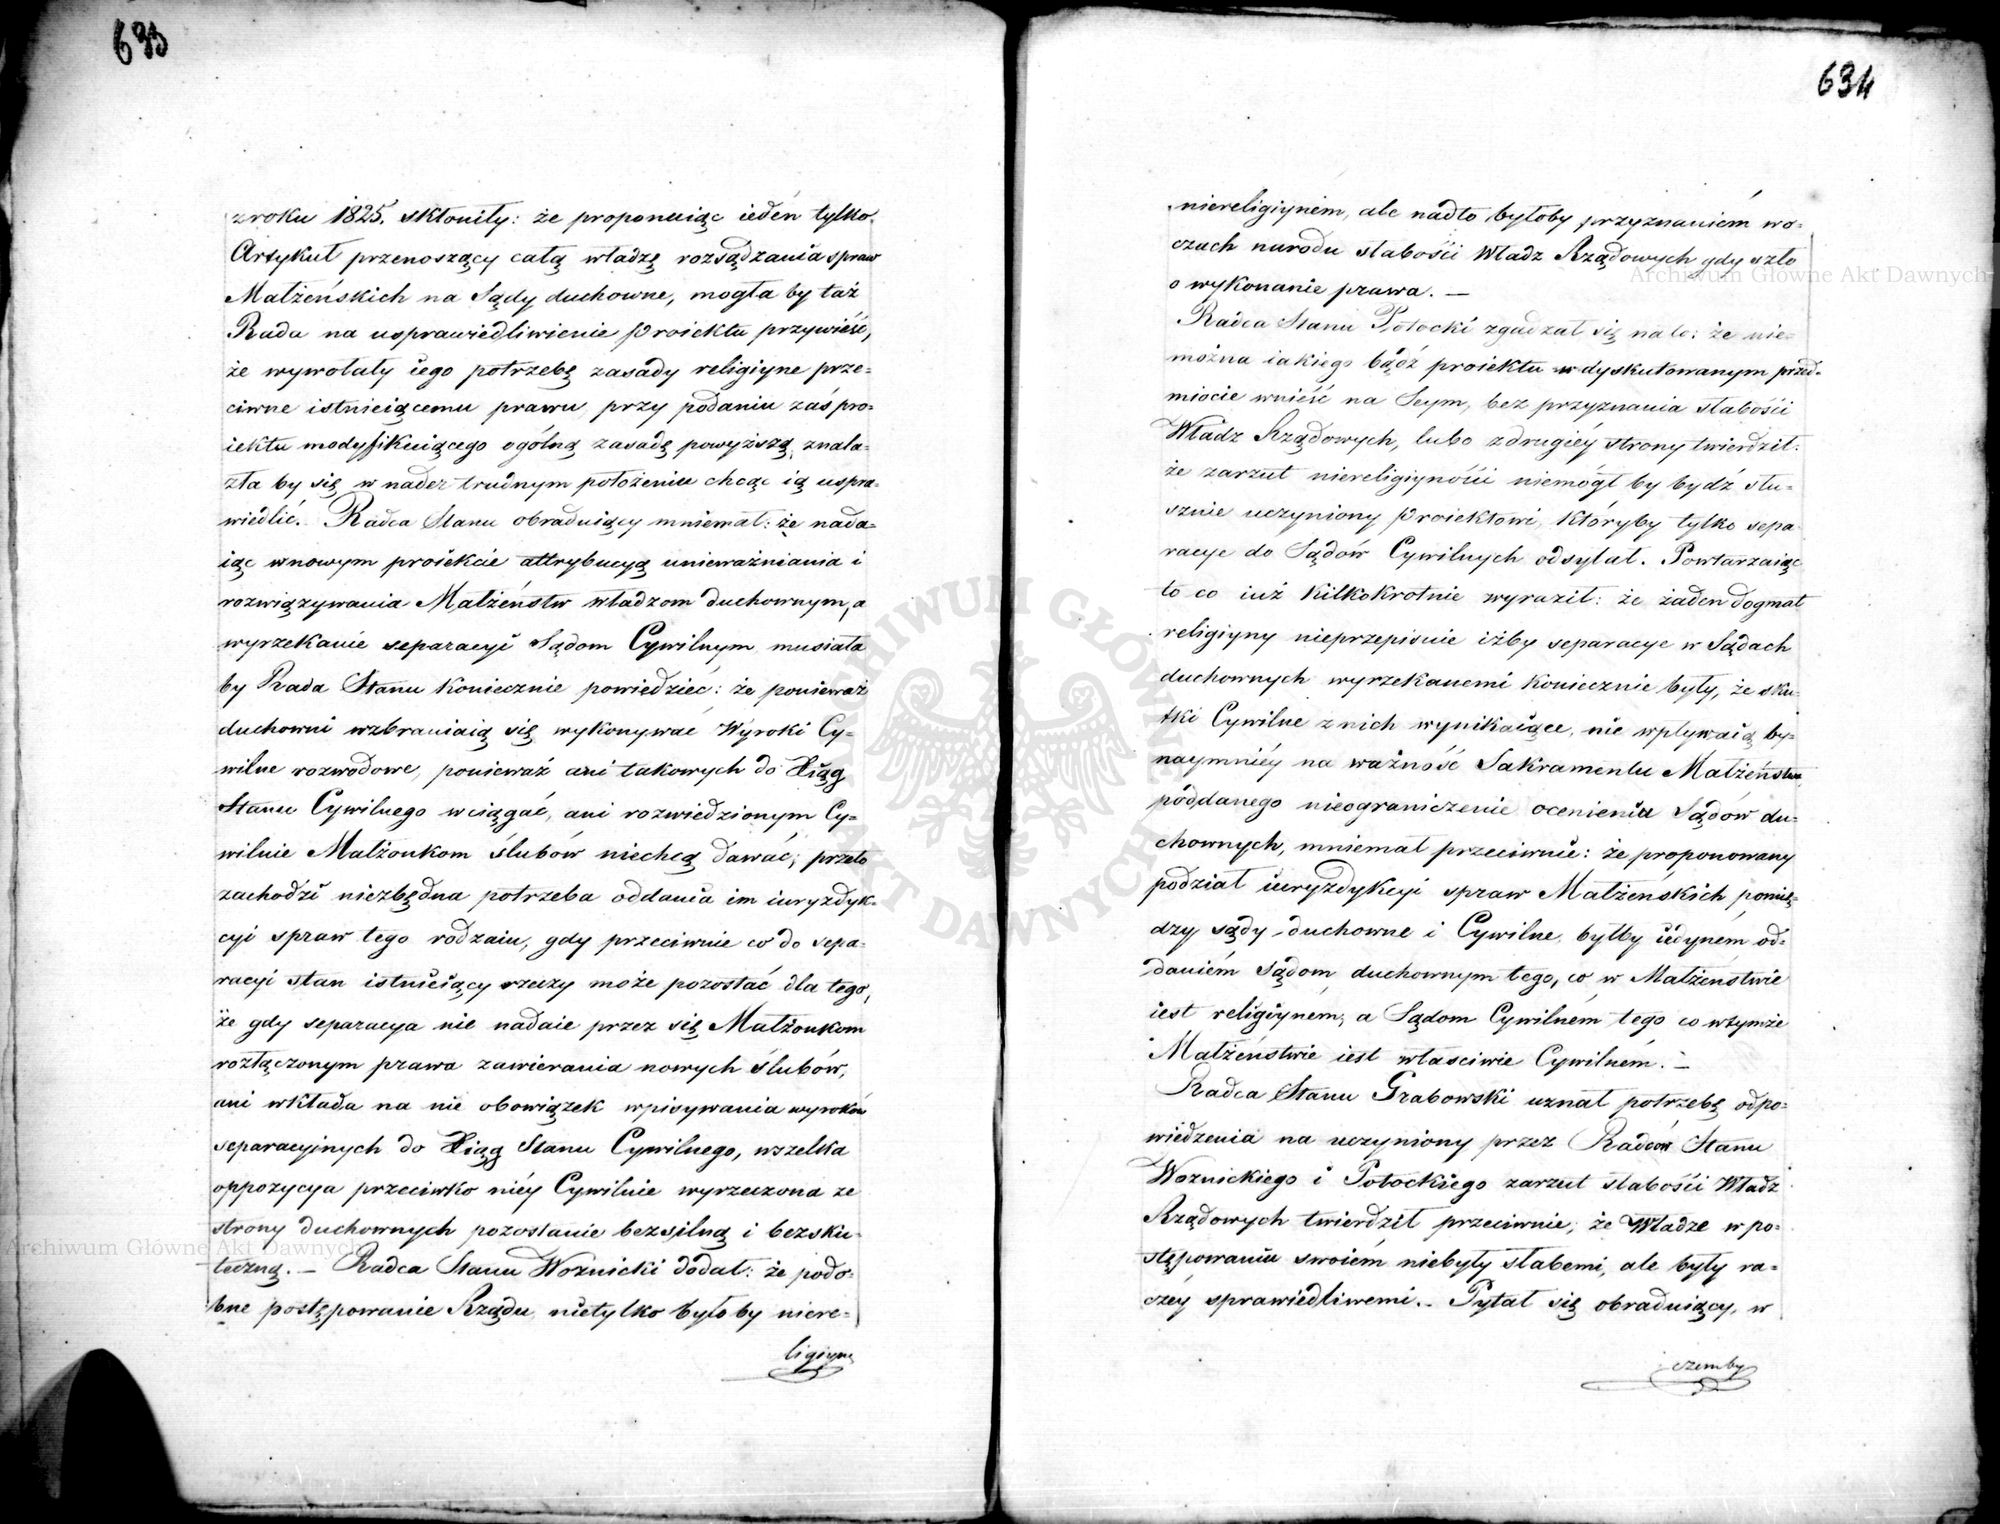 633
z roku 1825. skłoniły: że proponuiąc ieden tylko
Artykuł przenoszący całą władzę rozsądzania spraw
Małżeńskich na Sądy duchowne, mogła by taż
Rada na usprawiedliwienie Proiektu przywieść,
że wywołały iego potrzebę zasady religiyne prze=
ciwne istnieiącemu prawu, przy podaniu zaś pro=
iektu modyfikuiącego ogólną zasadę powyższą, znala=
zła by się w nader trudnym położeniu chcąc ią uspra=
wiedlić. Radca Stanu obraduiący mniemał: że nada=
iąc w nowym proiekcie attrybucyą unieważniania i
rozwiązywania Małżeństw władzom duchownym, a
wyrzekanie separacyi Sądom Cywilnym musiała
by Rada Stanu koniecznie powiedzieć: że ponieważ
duchowni wzbraniaią się wykonywać Wyroki Cy=
wilne rozwodowe, ponieważ ani takowych do Xiąg
Stanu Cywilnego wciągać, ani rozwiedzionym Cy=
wilnie Małżonkom ślubów niechcą dawać; przeto
zachodzi niezbędna potrzeba oddania im iuryzdyk=
cyi spraw tego rodzaiu, gdy przeciwnie co do sepa=
racyi stan istnieiący rzeczy może pozostać dla tego,
że gdy separacya nie nadaie przez się Małżonkom
rozłączonym prawa zawierania nowych ślubów,
ani wkłada na nie obowiązek wpisywania wyroków
separacyjnych do Xiąg Stanu Cywilnego, wszelka
oppozycya przeciwko niéy Cywilnie wyrzeczona ze
strony duchownych pozostanie bezsilną i bezsku=
teczną. — Radca Stanu Woznicki dodał: że podo=
bne postępowanie Rządu, nietylko byłoby niere=
ligiyne
634
niereligiyném, ale nadto byłoby przyznaniém wo=
czach narodu słabości Władz Rządowych gdy szło
o wykonanie prawa. —
Radca Stanu Potocki zgadzał się na to: że nie=
można iakiego bądź proiektu w dyskutowanym przed=
miocie wnieść na Seym, bez przyznania słabości
Władz Rządowych, lubo z drugiéy strony twierdził:
że zarzut niereligiyności niemógł by bydź słu=
sznie uczyniony Proiektowi, któryby tylko sepa=
racye do Sądów Cywilnych odsyłał. Powtarzaiąc
to co iuż kilkokrotnie wyraził: że żaden dogmat
religiyny nieprzepisuie iżby separacye w Sądach
duchownych wyrzekanemi koniecznie były, że sku=
tki Cywilne z nich wynikaiące, nie wpływaią by=
naymniéy na ważność Sakramentu Małżeństwa
poddanego nieograniczenie ocenieniu Sądów du=
chownych, mniemał przeciwnie: że proponowany
podział iuryzdykcyi spraw Małżeńskich pomię=
dzy sądy duchowne i Cywilne, byłby iedyném od=
daniém Sądom duchownym tego, co w Małżeństwie
iest religiyném, a Sądom Cywilném tego co w tymże
Małżeństwie iest własciwie Cywilném. —
Radca Stanu Grabowski uznał potrzebę odpo=
wiedzenia na uczyniony przez Radców Stanu
Woznickiego i Potockiego zarzut słabości Władz
Rządowych twierdził przeciwnie, że Władze w po=
stępowaniu swoiém niebyły słabemi, ale były ra=
czéy sprawiedliwemi. — Pytał się obraduiący, w
czemby
Archiwum Główne Akt Dawnych
Archiwum Główne Akt Dawnych
ARCHIWUM GŁÓWNE AKT DAWNYCH